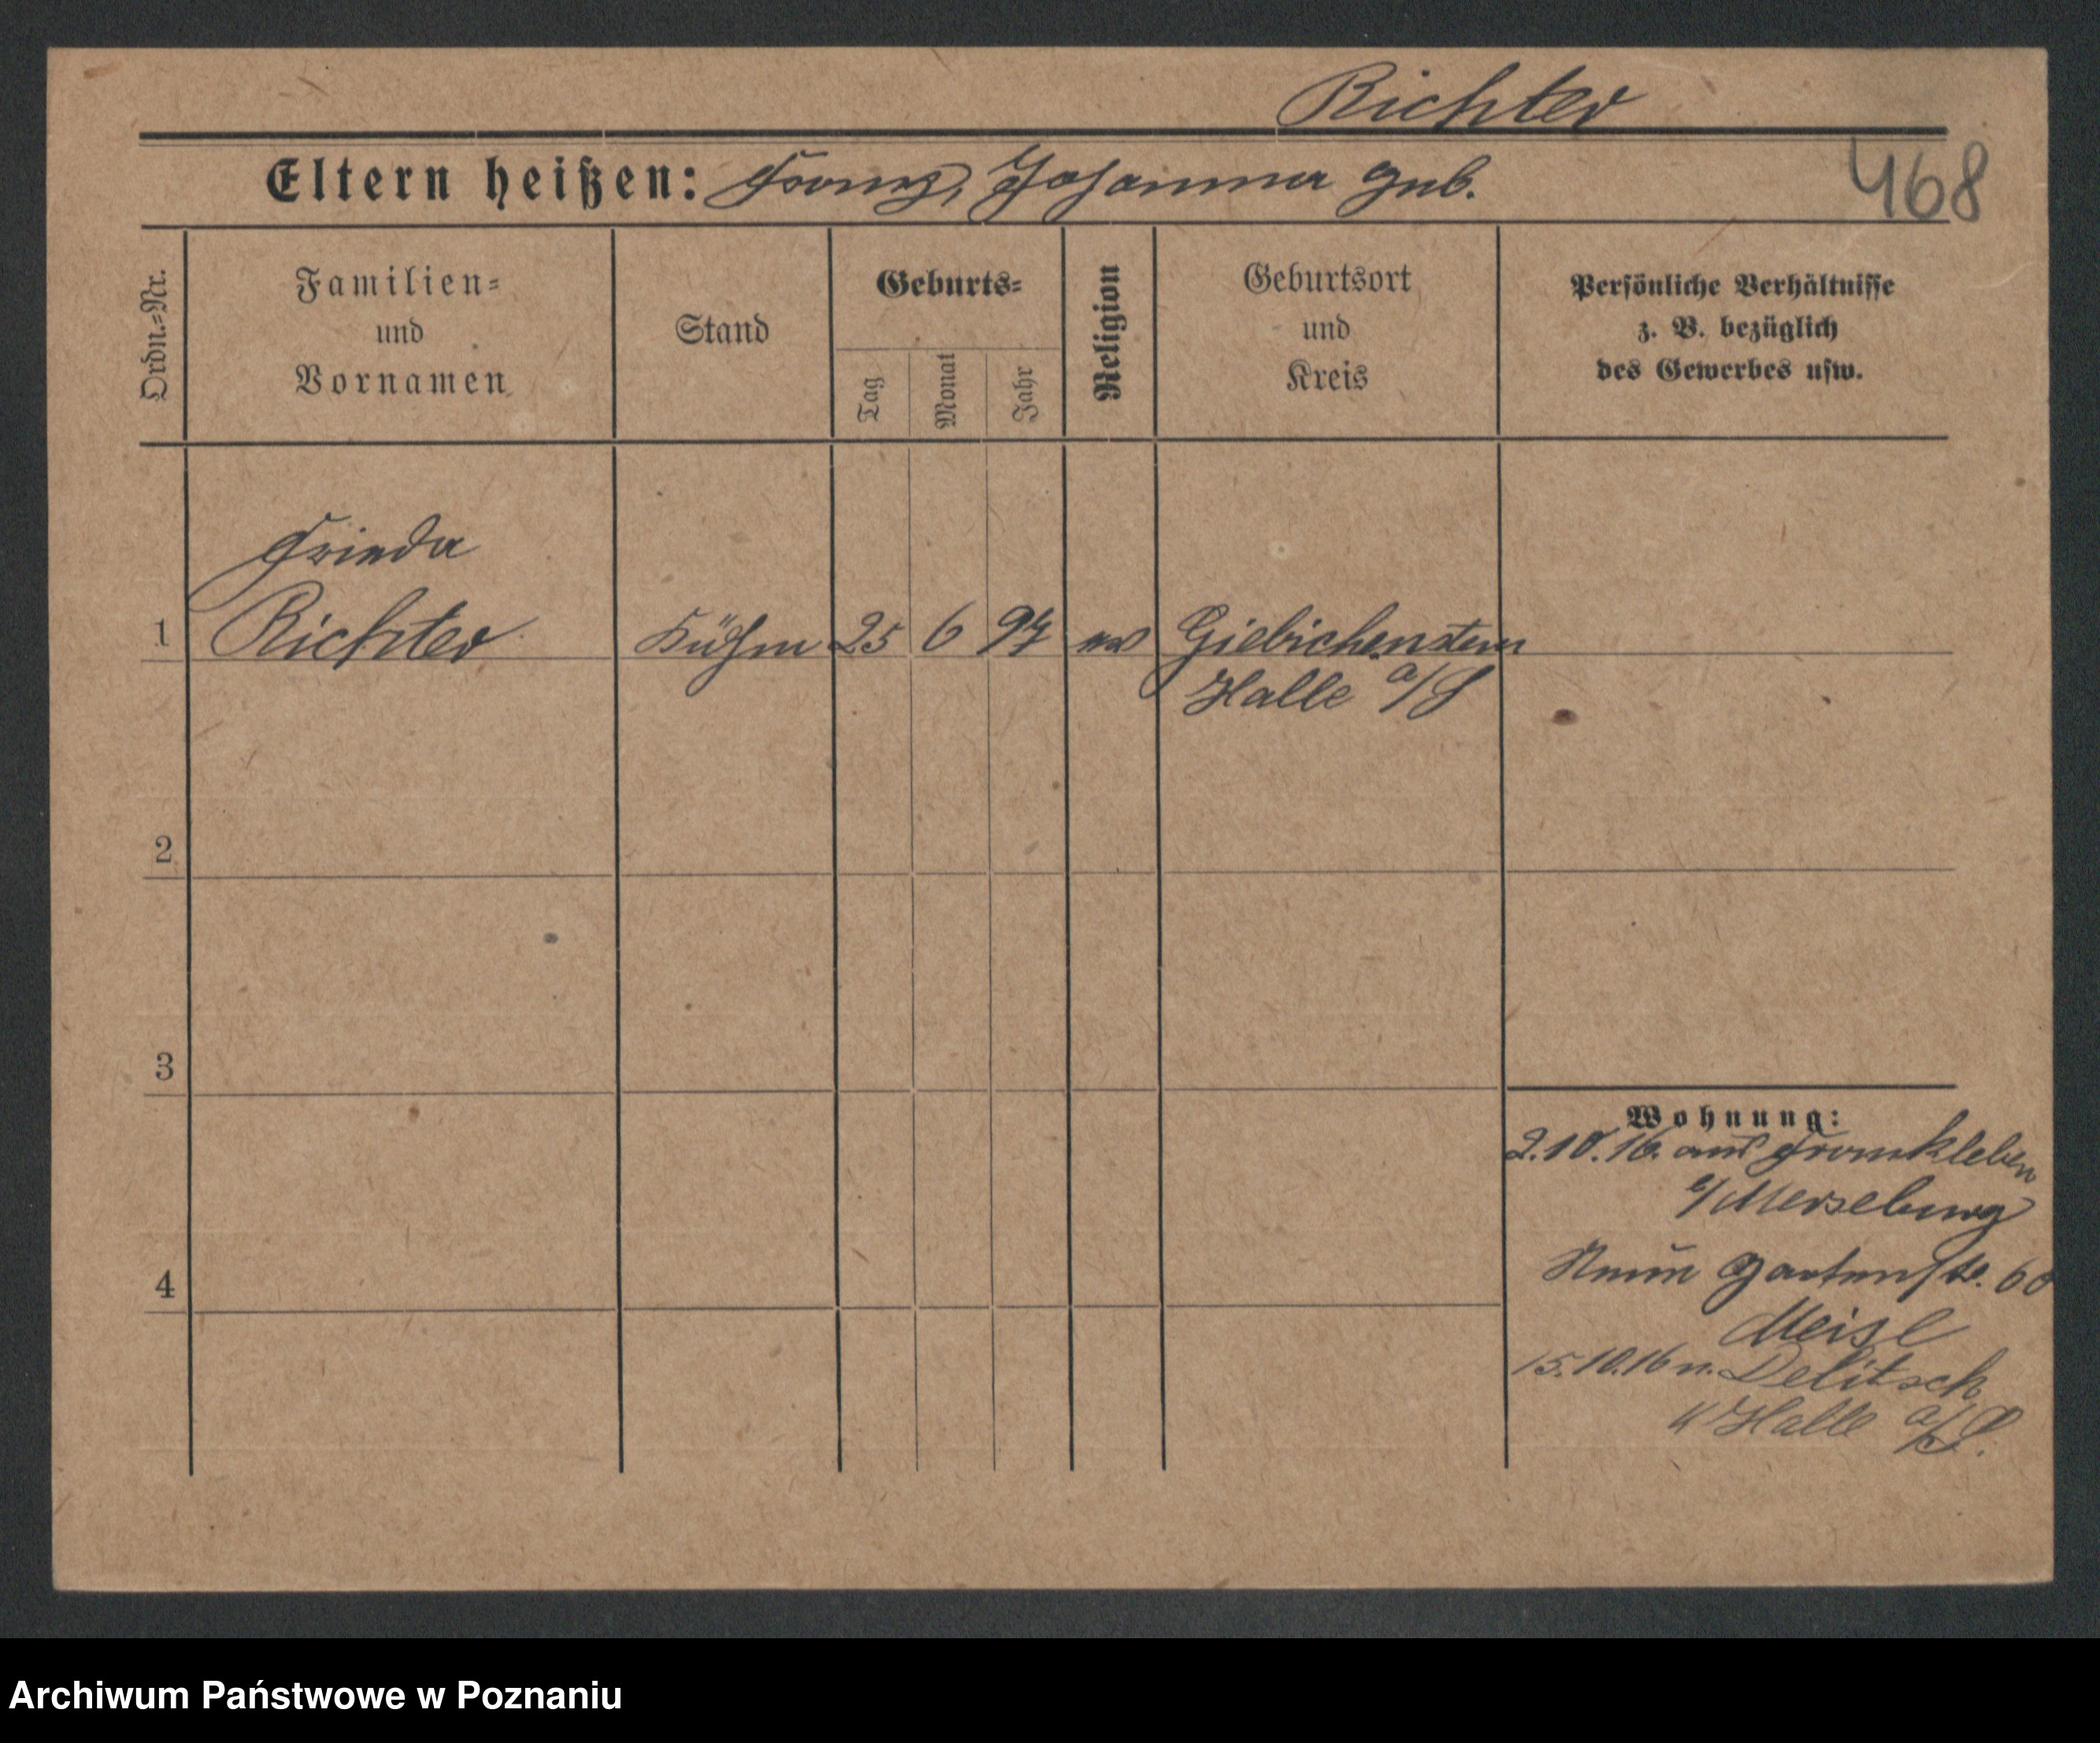 Richter
468
Eltern heißen: Franz, Johanna geb.
Ordn.=Nr.
Familien=
und
Vornamen
Stand
Geburts=
Tag
Monat
Jahr
Religion
Geburtsort
und
Kreis
Persönliche Verhältnisse
z. B. bezüglich
des Gewerbes usw.
Frieda
1 Richter 25 6 94 ev Giebichenstein
Halle a/S
2
3
4
Wohnung:
2.10.16. aus Frankleben
b/Merseburg
Gartenstr. 60
Meisl
15.10.16 n. Delitsch
Halle a/S.
Archiwum Państwowe w Poznaniu